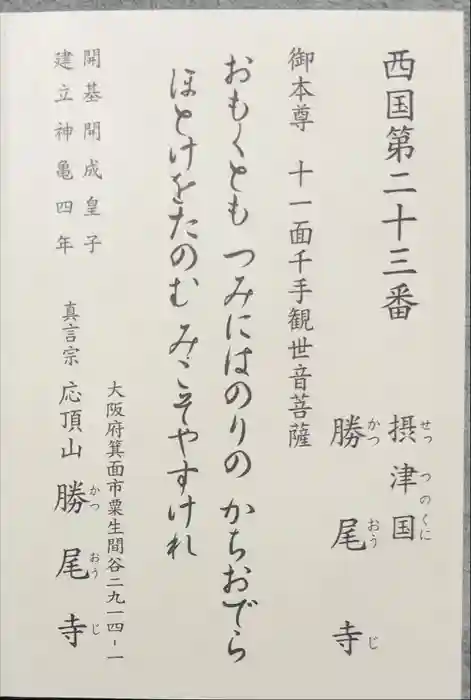 西国第二十三番
摂津国
せっつのくに
勝尾寺
かつおうじ
御本尊　十一面千手観世音菩薩
おもくとも　つみにはのりの　かちおでら
ほとけをたのむ　みこそやすけれ
開基開成皇子
建立神亀四年
大阪府箕面市粟生間谷二九一四-一
真言宗　応頂山　勝尾寺
かつおうじ